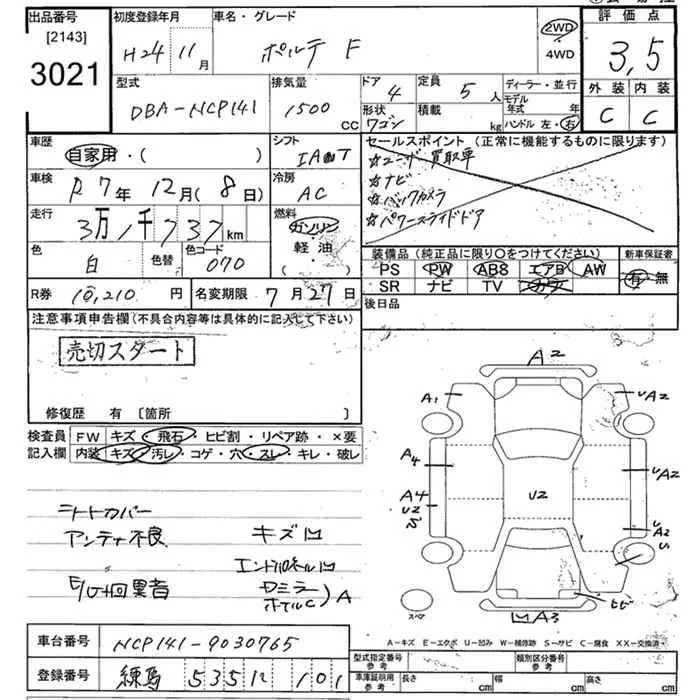 出品番号 初度登録年月 車名・グレード 評価点
[2143]
3021
H24 11月 ポルテ F 2WD 4WD 3,5
型式 排気量 ドア 4 定員 5人 ディーラー・並行
モデル年式 年
外装 内装
DBA-NCP141 1500cc 形状 ワゴン 積載 kg ハンドル 左・右 C C
車歴 シフト セールスポイント (正常に機能するものに限ります)
自家用・( )
☆ユーザー買取車
車検 R7年 12月(8日) 冷房 AC ☆ナビ
☆バックカメラ
走行 3万1千737km 燃料 ガソリン・軽油・( ) ☆パワースライドドア
色 白 色替 色コード 070
装備品(純正品に限り○をつけてください) 新車保証書
PS PW ABS エアB AW 有・無
SR ナビ TV
R券 10,210円 名変期限 7月27日 後日品
注意事項申告欄(不具合内容等は具体的に記入して下さい)
売切スタート
修復歴 有 [箇所 ]
検査員 FW キズ・飛石・ヒビ割・リペア跡・×要
記入欄 内装 キズ・汚レ・コゲ・穴・スレ・キレ・破レ
シートカバー
アンテナ不良 キズ凹
エンドパネル凹
E/G下回異音 Dミラー
ホイルC) A
A2
A1 UA2
A4 UA2
A4 U2
U2 UA2
U
ヒビ
スペア 凹A3
A-キズ E-エクボ U-凹み W-補修跡 S-サビ C-腐食 XX-交換済
車台番号 NCP141-9030765
登録番号 練馬 535 101
型式指定番号 参考 類別区分番号 参考
車庫証明用 参考 長さ cm 幅 cm 高さ cm